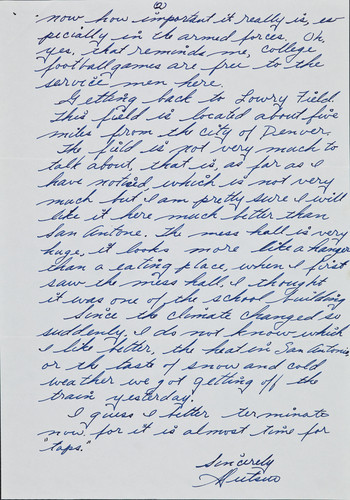 (2)
now how important it really is, es
pecially in the armed forces. Oh
yes, that reminds me, college
football games are free to the
service men here.
Getting back to Lowry Field.
This field is located about five
miles from the city of Denver.
The field is not very much to
talk about, that is, as far as I
have noticed, which is not very
much but I am pretty sure I will
like it here much better than
San Antone. The mess hall is very
huge, it looks more like a hangar
than a eating place, when I first
saw the mess hall, I thought
it was one of the school building
Since the climate changed so
suddenly, I do not know which
I like better, the heat in San Antonio
or the taste of snow and cold
weather we got getting off the
train yesterday.
I guess I better terminate
now for it is almost time for
"taps."
Sincerely